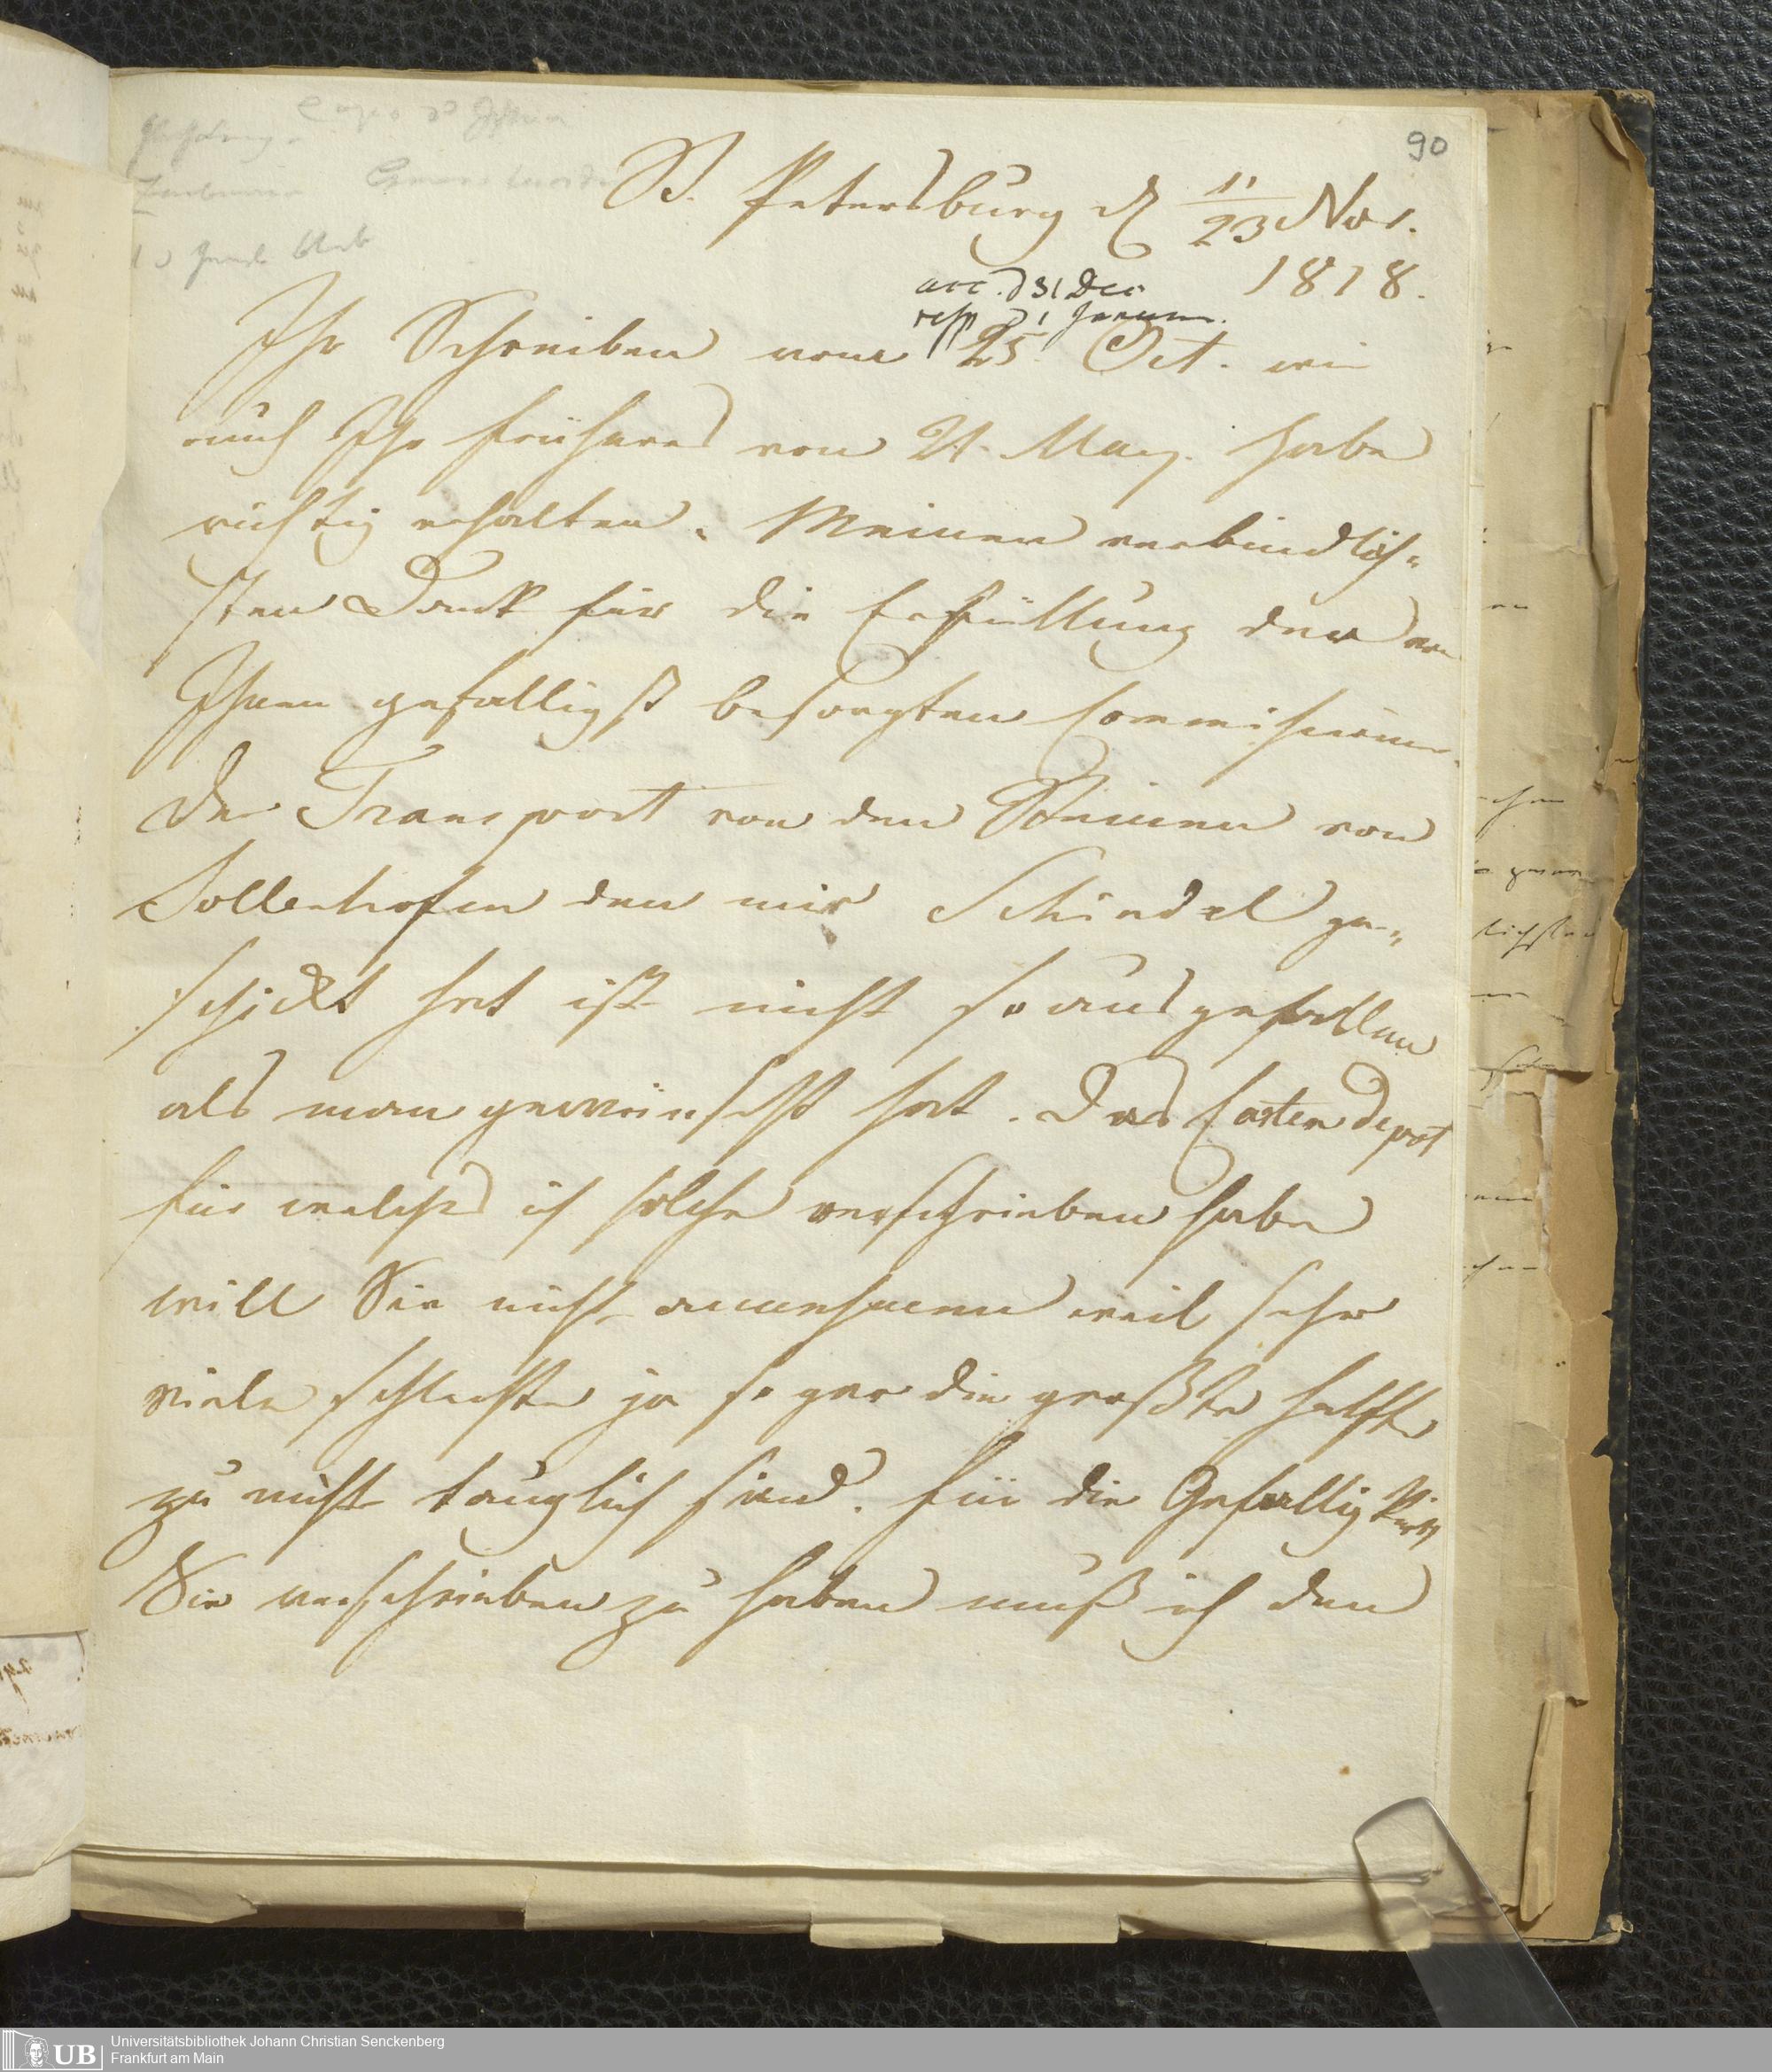 90
St. Petersburg d 11/23 Nov.
1818.
acc. d 31 Dec
resp d 1
Ihr Schreiben vom 25 Oct. wie
auch Ihr früheres vom 21. May. habe
richtig erhalten. Meinen verbindlich¬
sten Dank für die Erfüllung der von
Ihnen gefälligst besorgten Commissionen.
Der Transport von den Steinen von
Sollenhofen den mir Schindel ge¬
schickt hat ist nicht so ausgefallen
als man gewünscht hat. Das Carten depot
für welches ich solche verschrieben habe
will Sie nicht annehmen weil sehr
viele schlechte ja so gar die großte helfte
zu nicht tauglich sind. Für die Gefälligkeit
Sie verschrieben zu haben muß ich den
UB
Universitätsbibliothek Johann Christian Senckenberg
Frankfurt am Main